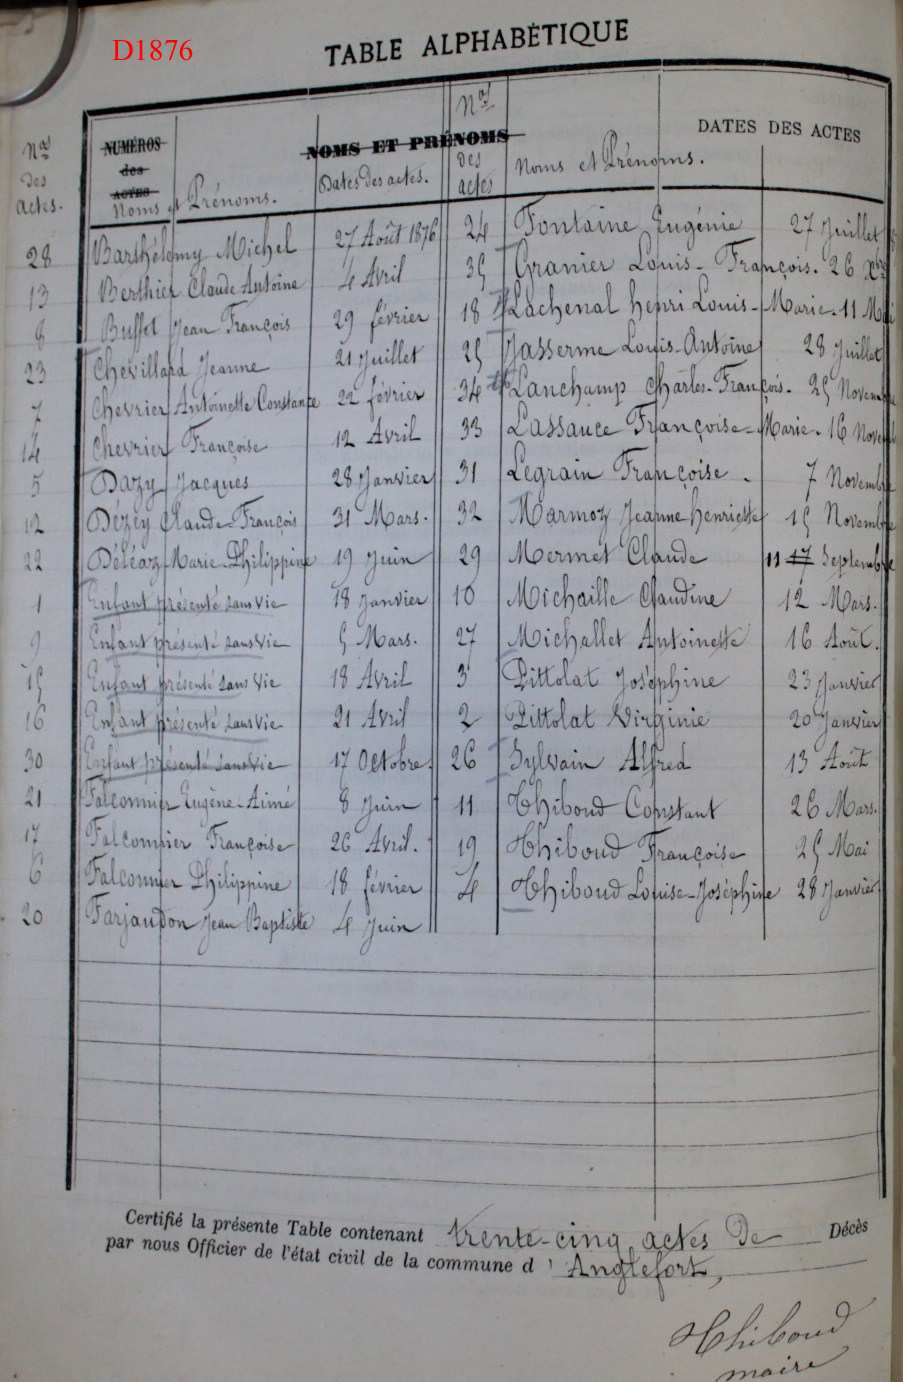 D1876
TABLE ALPHABÉTIQUE
Nos des actes. NUMÉROS des ACTES Noms et Prénoms. NOMS ET PRÉNOMS Dates des actes. Nos des actes Noms et Prénoms. DATES DES ACTES
28 Barthélemy Michel 27 Août 1876 24 Fontaine Eugénie 27 Juillet
13 Berthier Claude Antoine 4 Avril 35 Granier Louis-François. 26 Xbre
8 Buffet Jean François 29 février 18 Lachenal henri Louis-Marie. 11 Mai
23 Chevillard Jeanne 21 Juillet 25 Jasserme Louis-Antoine 28 Juillet
7 Chevrier Antoinette Constance 22 février 34 Lanchamp Charles-François. 25 Novembre
14 Chevrier Françoise 12 Avril 33 Lassauce Françoise-Marie. 16 Novemb
5 Dazy Jacques 28 Janvier 31 Legrain Françoise. 7 Novembre
12 Dézey Claude-François 31 Mars. 32 Marmoz Jeanne henriette 15 Novembre
22 Déléaz Marie-Philippine 19 Juin 29 Mermet Claude 11 17 Septembre
1 Enfant présenté sans vie 18 Janvier 10 Michaille Claudine 12 Mars.
9 Enfant présenté sans vie 5 Mars. 27 Michallet Antoinette 16 Août.
15 Enfant présenté sans vie 18 Avril 3 Pittolat Joséphine 23 Janvier
16 Enfant présenté sans vie 21 Avril 2 Pittolat Virginie 20 Janvier
30 Enfant présenté sans vie 17 Octobre. 26 Sylvain Alfred 13 Août
21 Falconnier Eugène-Aimé 8 Juin 11 Thiboud Constant 26 Mars.
17 Falconnier Françoise 26 Avril. 19 Thiboud Françoise 25 Mai
6 Falconnier Philippine 18 février 4 Thiboud Louise-Joséphine 28 Janvier.
20 Farjaudon Jean Baptiste 4 Juin
Certifié la présente Table contenant trente-cinq actes de Décès
par nous Officier de l'état civil de la commune d'Anglefort,
Thiboud
maire